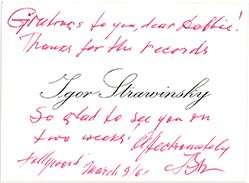 Greetings to you, dear Bobbie!
Thanks for the records
Igor Strawinsky
So glad to see you on
two weeks! Affectionately
Hollywood March 9/61 I Str